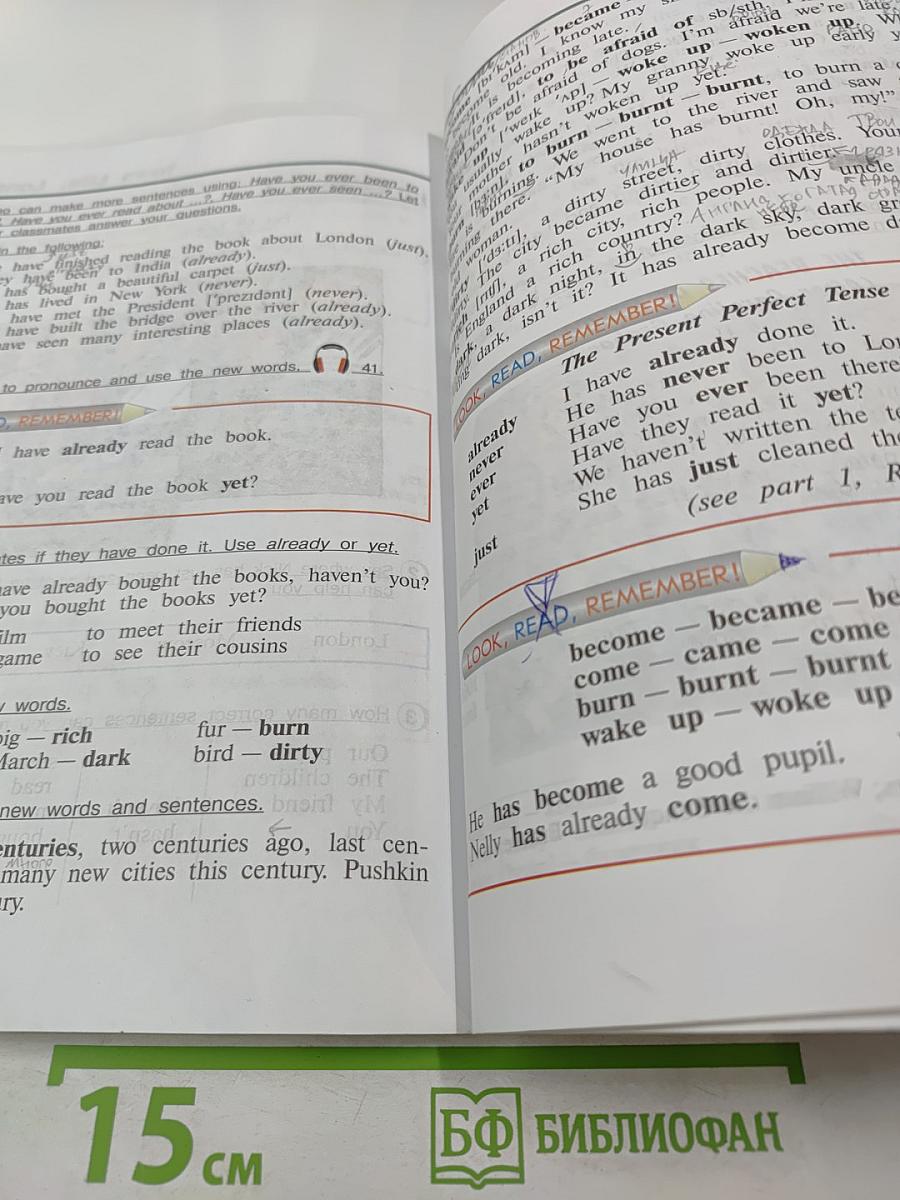 o can make more sentences using: Have you ever been to
? Have you ever read about ...? Have you ever seen ...? Let
r classmates answer your questions.
in the following:
have finished reading the book about London (just).
ey have been to India (already).
has bought a beautiful carpet (just).
has lived in New York (never).
have met the President ['prezıdənt] (never).
have built the bridge over the river (already).
ave seen many interesting places (already).
to pronounce and use the new words. 41.
D, REMEMBER!
have already read the book.
ave you read the book yet?
ates if they have done it. Use already or yet.
have already bought the books, haven't you?
you bought the books yet?
film to meet their friends
game to see their cousins
y words.
big — rich fur — burn
March — dark bird — dirty
new words and sentences.
enturies, two centuries ago, last cen-
много
many new cities this century. Pushkin
ury.
[bı'kʌm] — became
old. I know my
is becoming late.
to be afraid of sb/sth,
Don't be afraid of dogs. I'm afraid we're late.
up ['weık 'ʌp] — woke up — woken up.
usually wake up? My granny woke up early
mother hasn't woken up yet.
to burn — burnt — burnt, to burn a
burning. We went to the river and saw
there. "My house has burnt! Oh, my!"
улица одежда твои
woman. a dirty street, dirty clothes. Your
dirty. The city became dirtier and dirtier.
rich [rıtʃ], a rich city, rich people. My uncle
Is England a rich country? Англия богатая
dark, a dark night, in the dark sky, dark
dark, isn't it? It has already become
LOOK, READ, REMEMBER!
The Present Perfect Tense
already I have already done it.
never He has never been to Lon
ever Have you ever been there
yet Have they read it yet?
We haven't written the te
just She has just cleaned the
(see part 1, R
LOOK, READ, REMEMBER!
become — became — be
come — came — come
burn — burnt — burnt
wake up — woke up
He has become a good pupil.
Nelly has already come.
15 см
БФ БИБЛИОФАН